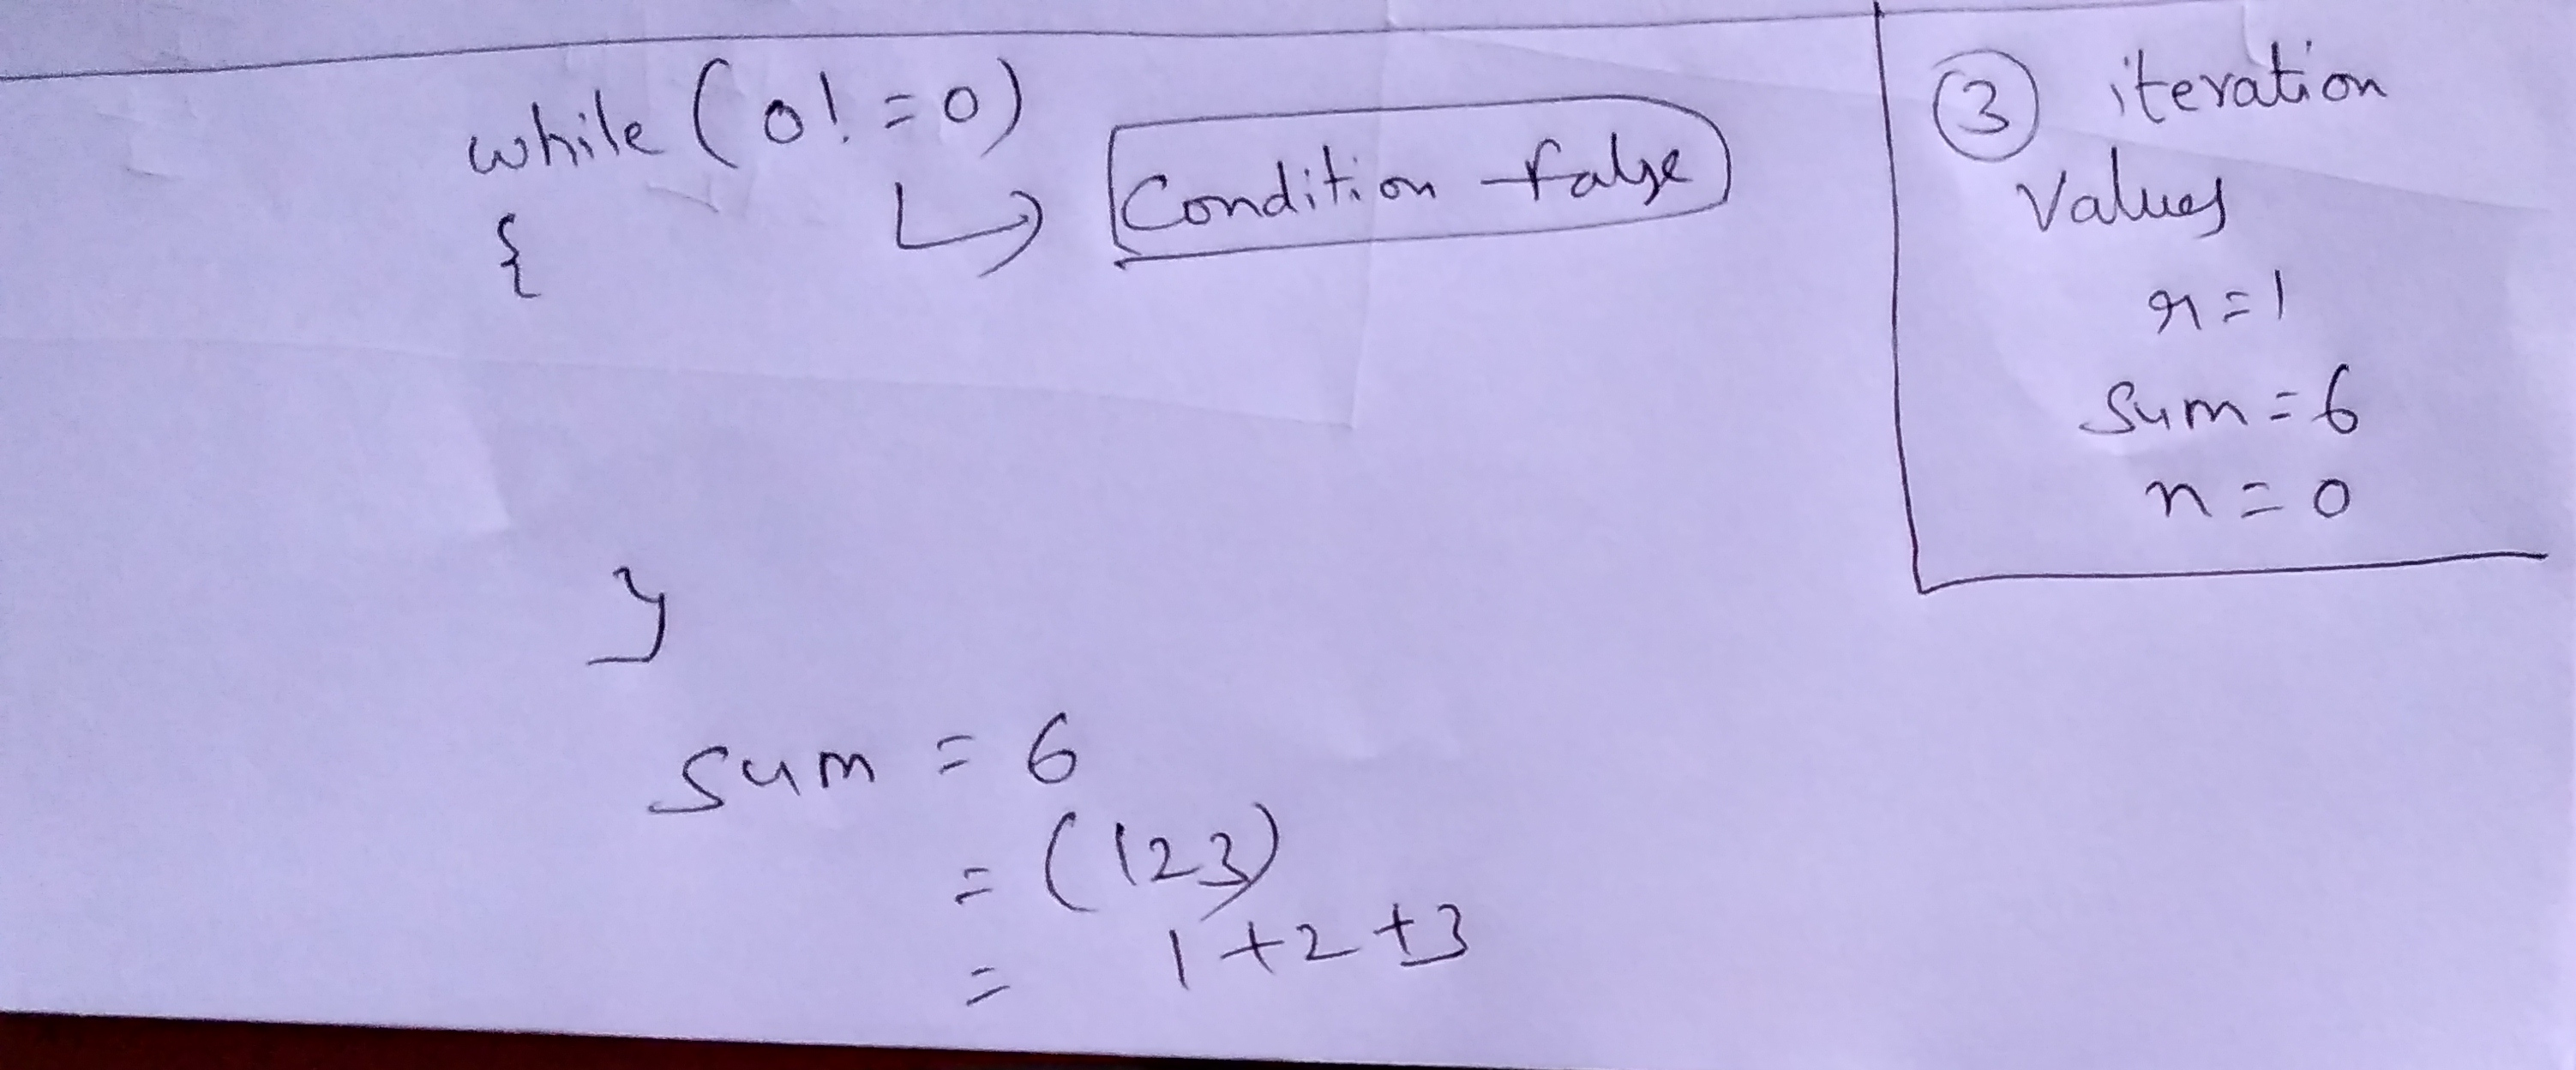 while (0! = 0)
{
Condition false
}
sum = 6
= (123)
= 1 + 2 + 3
3 iteration
Values
r = 1
sum = 6
n = 0